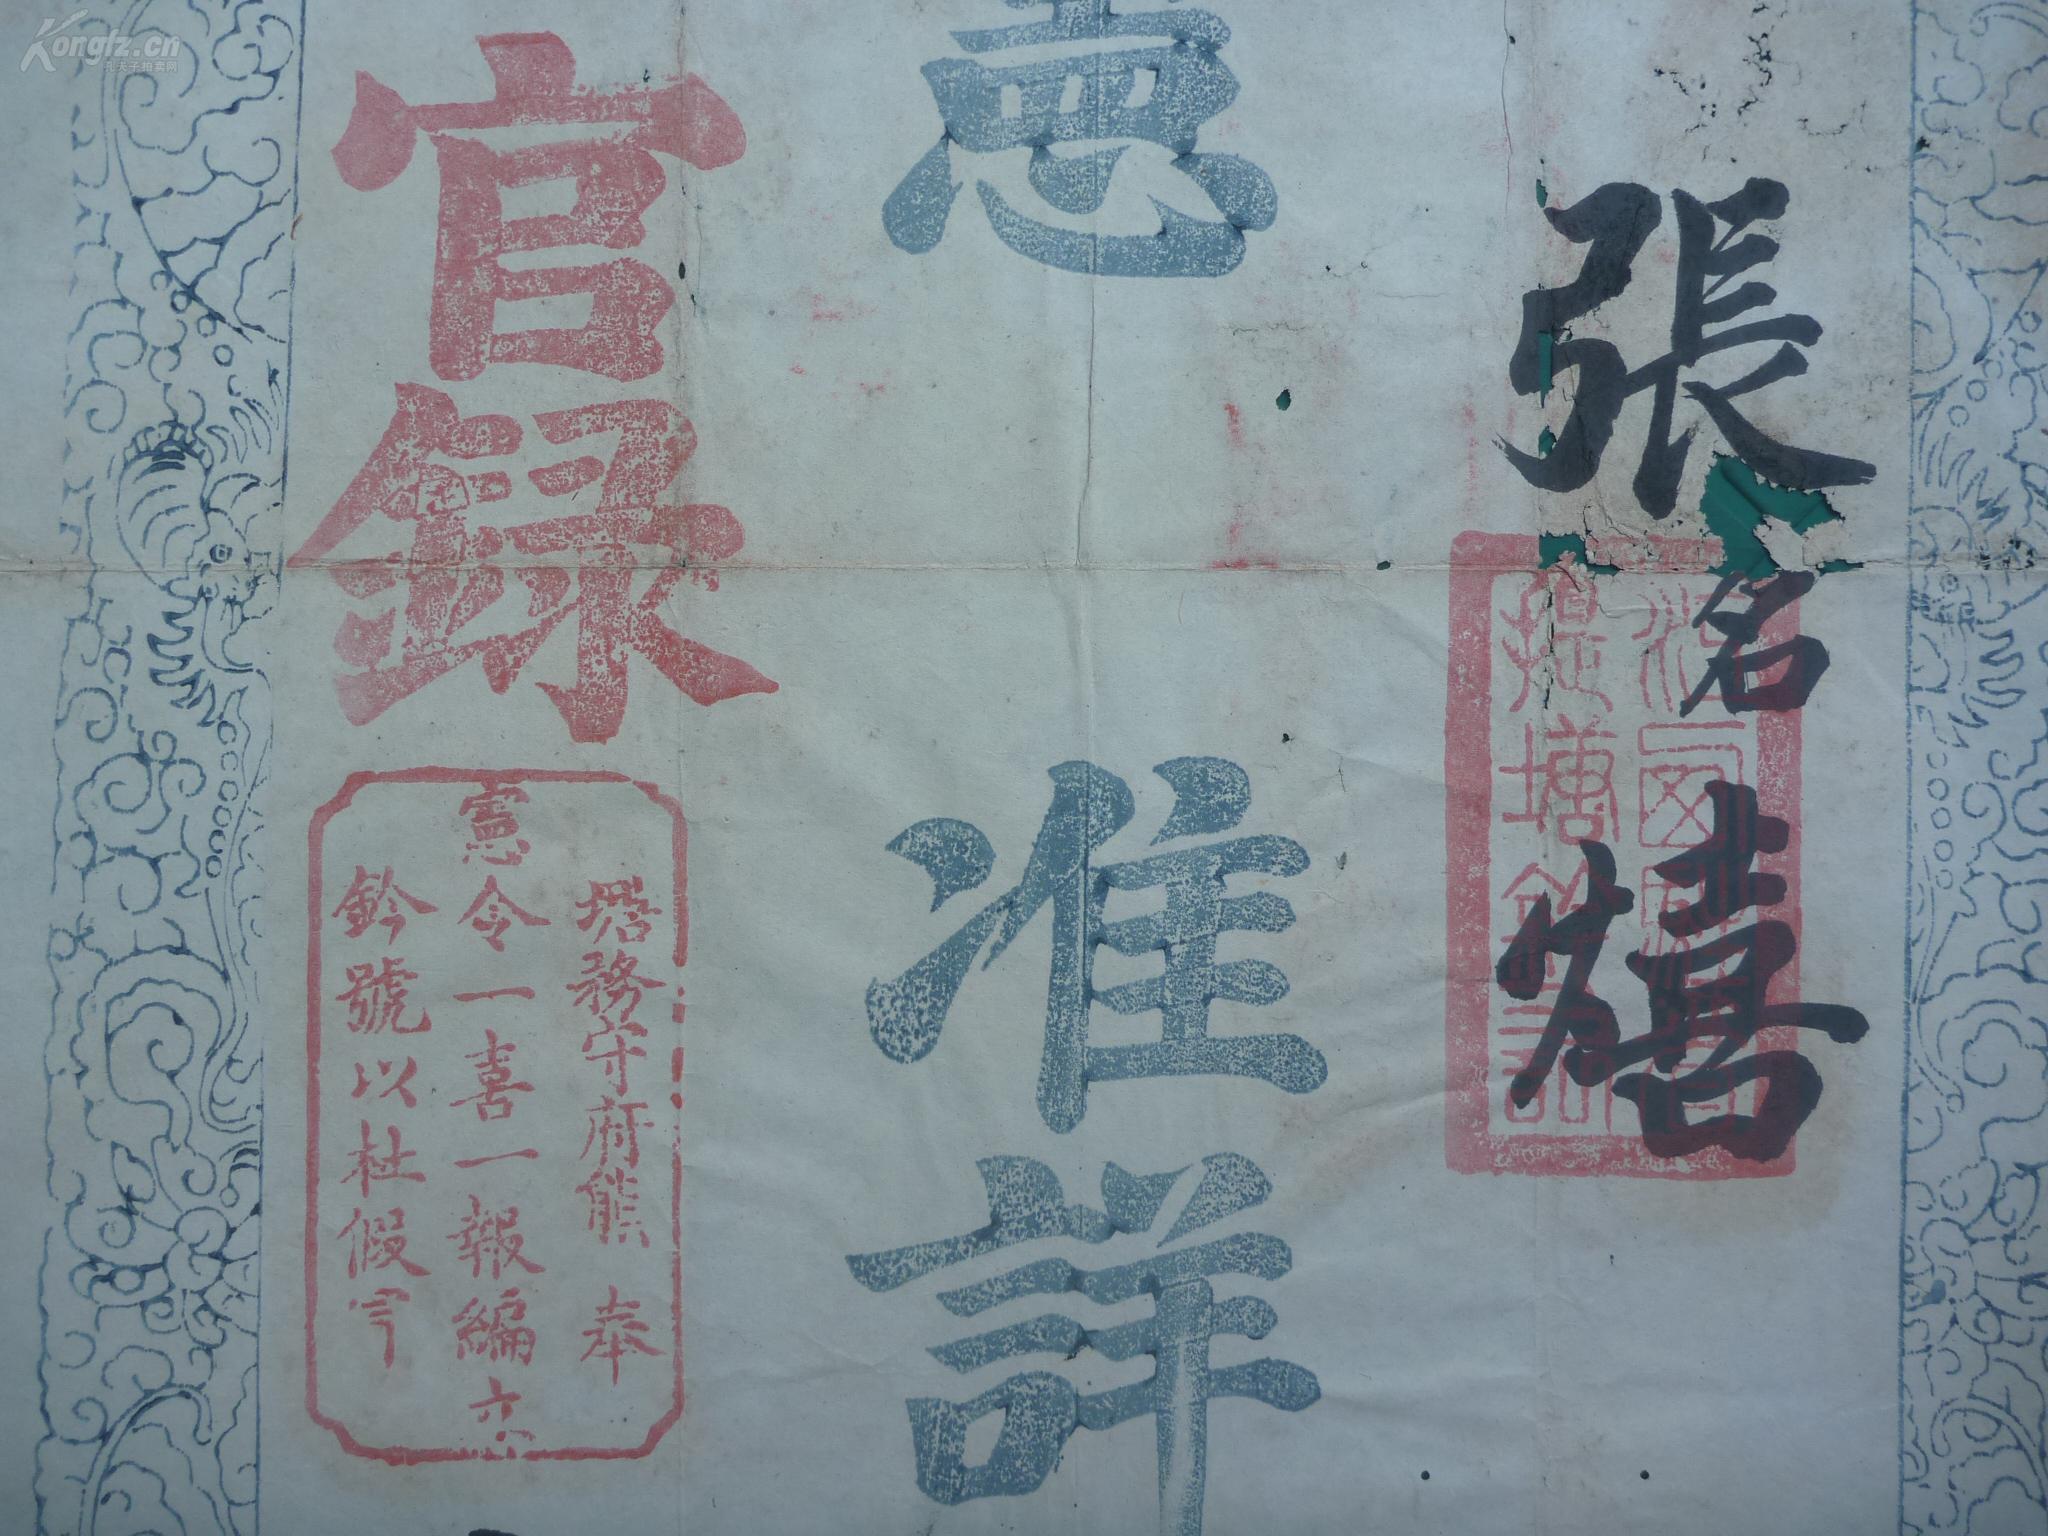 Kongfz.cn
孔夫子拍卖网
張名禧
江西
提塘鈐記
憲
准詳
官録
塘務守府熊 奉
憲令一喜一報編立
鈐號以杜假冒